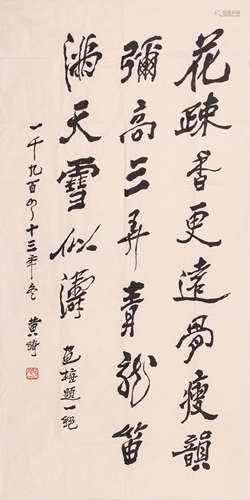 花疎香更遠骨瘦韻
彌高三弄青龍笛
滿天雪似濤畫梅題一絕
一千九百四十三年冬 黄绮